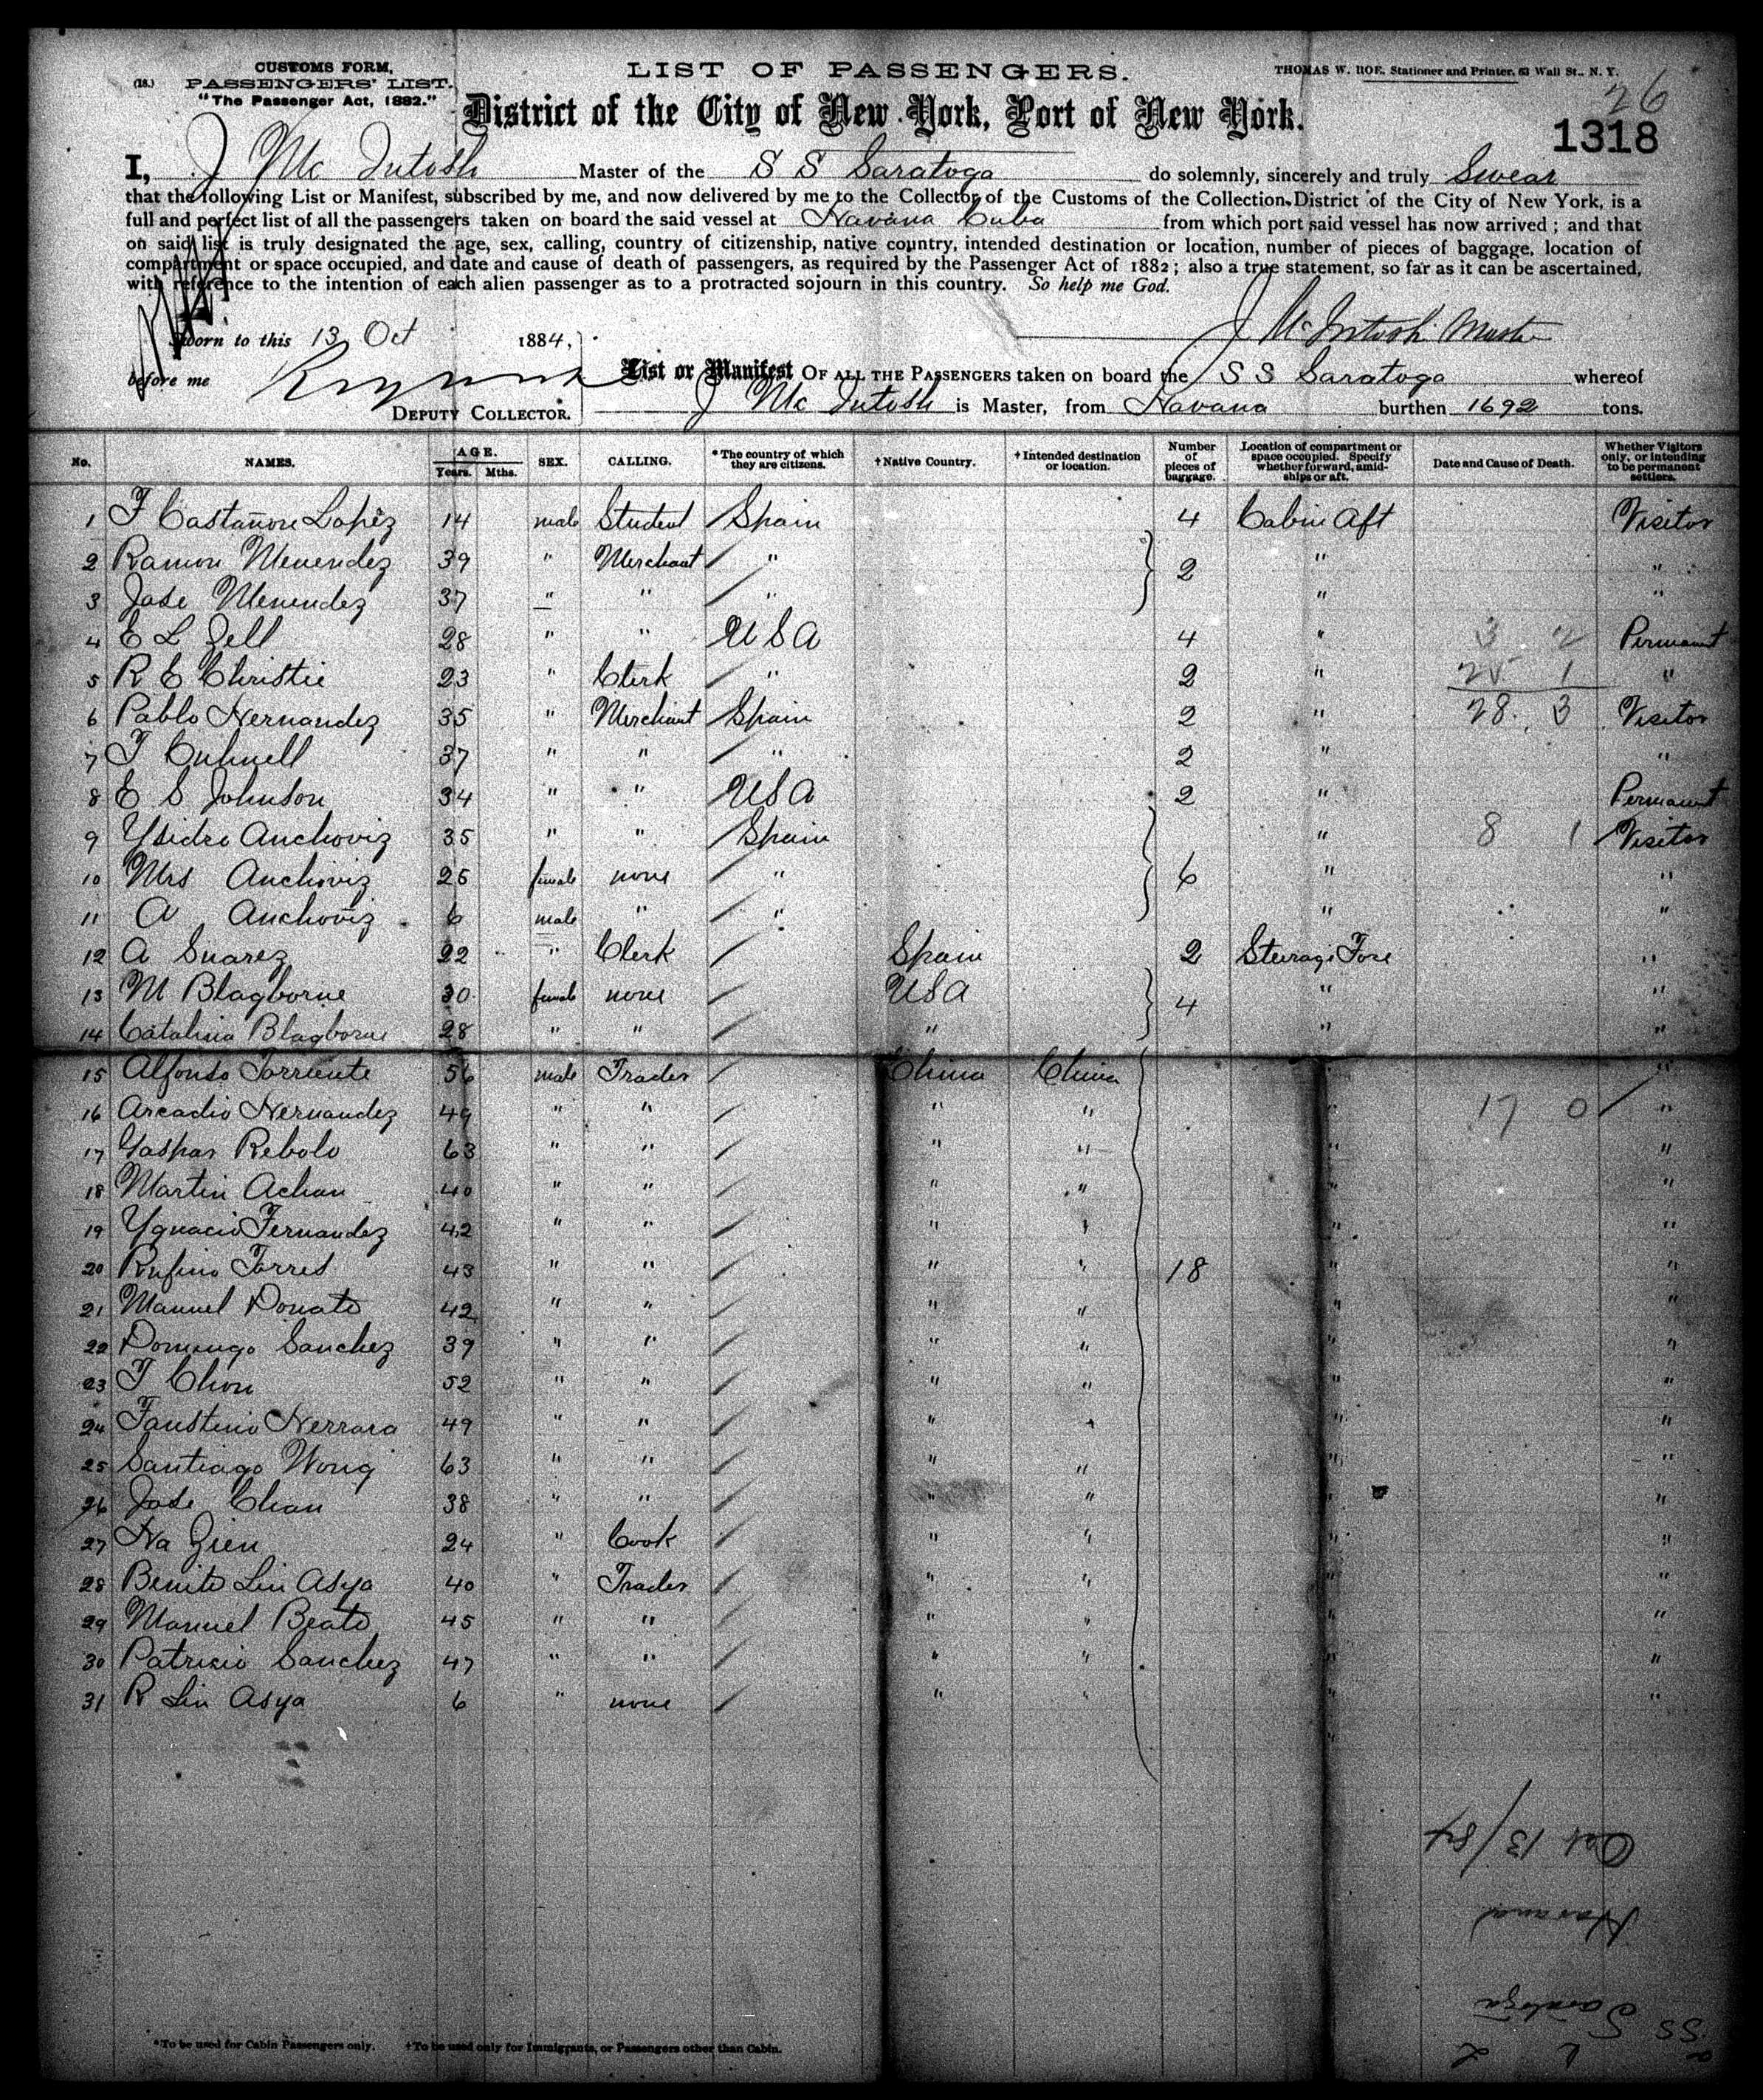 CUSTOMS FORM.
(18.) PASSENGERS' LIST.
"The Passenger Act, 1882."
LIST OF PASSENGERS.
THOMAS W. ROE, Stationer and Printer, 63 Wall St., N. Y.
26
District of the City of New York, Port of New York.
1318
I, J Mc Intosh Master of the S S Saratoga do solemnly, sincerely and truly Swear
that the following List or Manifest, subscribed by me, and now delivered by me to the Collector of the Customs of the Collection District of the City of New York, is a
full and perfect list of all the passengers taken on board the said vessel at Havana Cuba from which port said vessel has now arrived ; and that
on said list is truly designated the age, sex, calling, country of citizenship, native country, intended destination or location, number of pieces of baggage, location of
compartment or space occupied, and date and cause of death of passengers, as required by the Passenger Act of 1882 ; also a true statement, so far as it can be ascertained,
with reference to the intention of each alien passenger as to a protracted sojourn in this country. So help me God.
Sworn to this 13 Oct 1884,
J McIntosh Master
before me
DEPUTY COLLECTOR.
List or Manifest OF ALL THE PASSENGERS taken on board the S S Saratoga whereof
J Mc Intosh is Master, from Havana burthen 1692 tons.
No. NAMES. AGE. Years. Mths. SEX. CALLING. *The country of which they are citizens. †Native Country. †Intended destination or location. Number of pieces of baggage. Location of compartment or space occupied. Specify whether forward, amidships or aft. Date and Cause of Death. Whether Visitors only, or intending to be permanent settlers.
1 F Castañon Lopez 14 male Student Spain 4 Cabin Aft Visitor
2 Ramon Menendez 39 " Merchant " 2 " "
3 Jose Menendez 37 " " " " "
4 E L Zell 28 " " USA 4 " 3 2 Permanent
5 R E Christie 23 " Clerk " 2 " 25 1 "
6 Pablo Hernandez 35 " Merchant Spain 2 " 28 3 Visitor
7 37 " " " 2 " "
8 E S Johnson 34 " " USA 2 " Permanent
9 Ysidro Anchoviz 35 " " Spain " 8 1 Visitor
10 Mrs Anchoviz 25 female none " 6 " "
11 A Anchoviz 6 male " " " "
12 A Suarez 22 " Clerk Spain 2 Steerage Fore "
13 M Blagborne 30 female none USA 4 " "
14 Catalina Blagborne 28 " " " " "
15 Alfonso Torriente 56 male Trader China China "
16 Arcadio Hernandez 49 " " " " " 17 0 "
17 Gaspar Rebolo 63 " " " " " "
18 Martin Achan 40 " " " " " "
19 Ygnacio Fernandez 42 " " " " " "
20 Rufino Torres 43 " " " " 18 " "
21 Manuel Donato 42 " " " " " "
22 Domingo Sanchez 39 " " " " " "
23 F Chon 52 " " " " " "
24 Faustino Herrara 49 " " " " " "
25 Santiago Wong 63 " " " " " "
26 Jose Chan 38 " " " " " "
27 Ha Zien 24 " Cook " " " "
28 Benito Lin Asya 40 " Trader " " " "
29 Manuel Beato 45 " " " " " "
30 Patricio Sanchez 47 " " " " " "
31 R Lin Asya 6 " none " " " "
Oct 13/84
Havana
Saratoga
SS
*To be used for Cabin Passengers only. †To be used only for Immigrants, or Passengers other than Cabin.